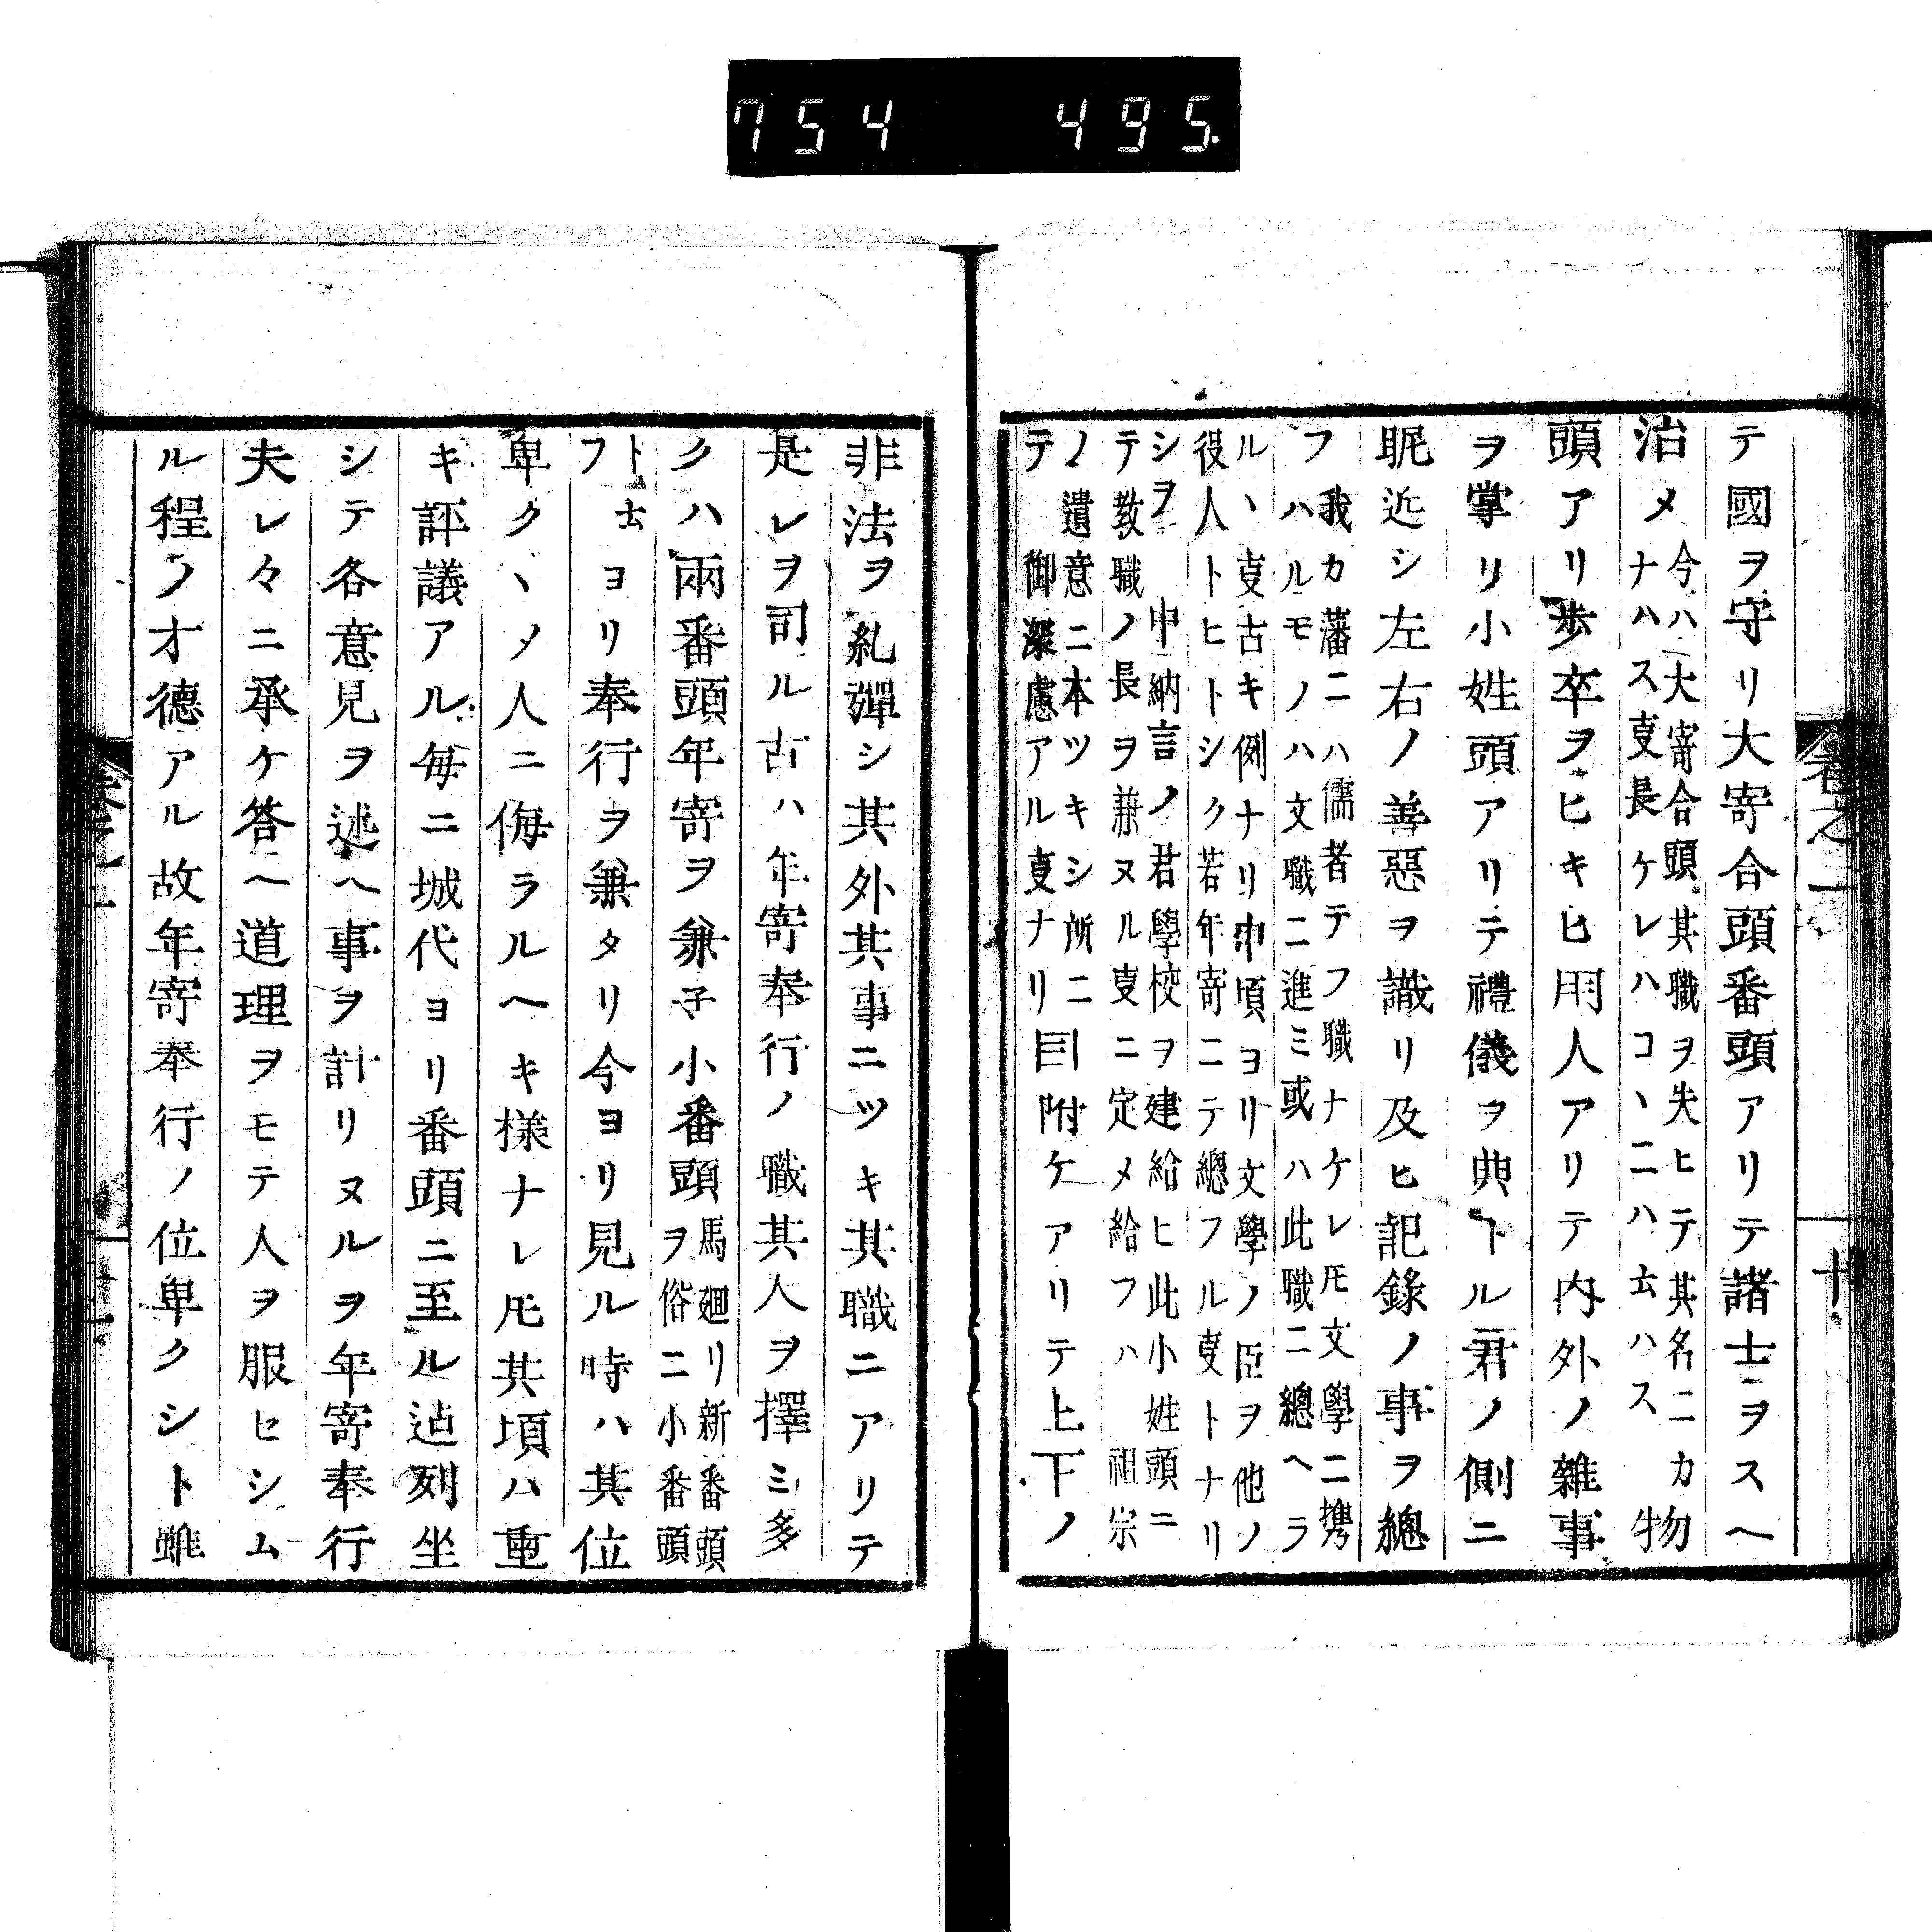 754 495.
卷之一 十
テ國ヲ守リ大寄合頭番頭アリテ諸士ヲスヘ
治メ
今ハ大寄合頭其職ヲ失ヒテ其名ニカ
ナハス叓長ケレハコヽニハ玄ハス
物
頭アリ歩卒ヲヒキヒ用人アリテ内外ノ雜事
ヲ掌リ小姓頭アリテ禮儀ヲ典トル君ノ側ニ
眤近シ左右ノ善惡ヲ識リ及ヒ記錄ノ事ヲ總
フ
我カ藩ニハ儒者テフ職ナケレ𪜈文學ニ携
ハルモノハ文職ニ進ミ或ハ此職ニ總ヘラ
ルヽ叓古キ例ナリ中頃ヨリ文學ノ臣ヲ他ノ
役人トヒトシク若年寄ニテ總フル叓トナリ
シヲ 中納言ノ君學校ヲ建給ヒ此小姓頭ニ
テ教職ノ長ヲ兼ヌル叓ニ定メ給フハ 祖宗
ノ遺意ニ本ツキシ所ニ
テ 御深慮アル叓ナリ
目附ケアリテ上下ノ
非法ヲ糺彈シ其外其事ニツキ其職ニアリテ
是レヲ司ル古ハ年寄奉行ノ職其人ヲ擇ミ多
クハ兩番頭年寄ヲ兼子小番頭
馬廻リ新番頭
ヲ俗ニ小番頭
ト玄
フ
ヨリ奉行ヲ兼タリ今ヨリ見ル時ハ其位
卑クヽメ人ニ侮ラルヘキ様ナレ𪜈其頃ハ重
キ評議アル毎ニ城代ヨリ番頭ニ至ル迠列坐
シテ各意見ヲ述ヘ事ヲ計リヌルヲ年寄奉行
夫レ々ニ承ケ答ヘ道理ヲモテ人ヲ服セシム
ル程ノ才德アル故年寄奉行ノ位卑クシト雖